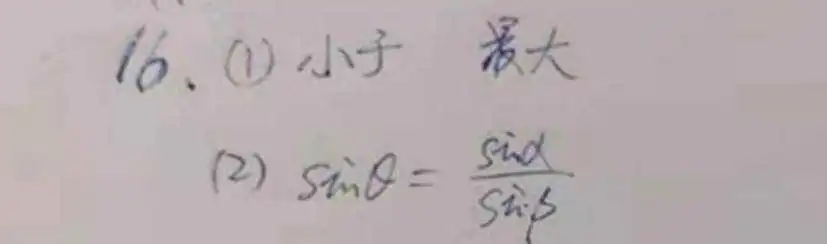 16. (1) 小于 最大
(2) sinθ = sinα / sinβ